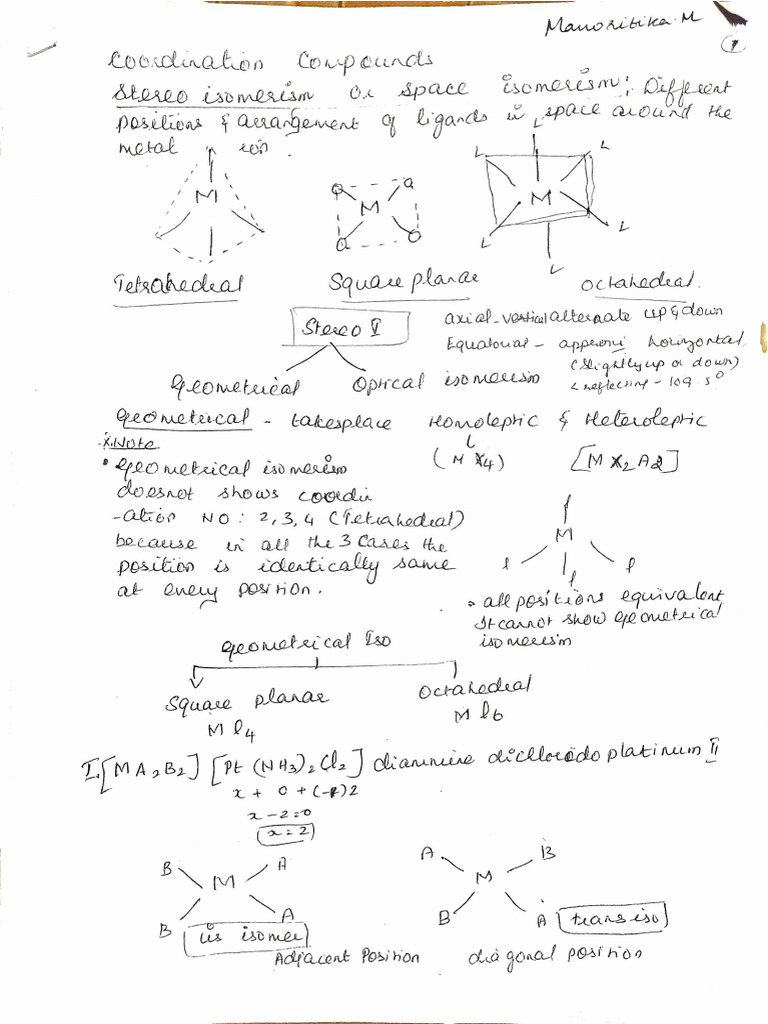 Manoritika.M
1
Coordination Compounds
Stereo isomerism or space isomerism: Different
positions & arrangement of ligands in space around the
metal ion.
M
a a
M
a a
L L L
M
L L
L
Tetrahedral Square planar Octahedral.
Stereo I
axial - vertical alternate up & down
Equatorial - horizontal
(slightly up or down)
Geometrical Optical isomerism
Geometrical - takesplace Homoleptic & Heteroleptic
Note
(M X4) [M X2 A2]
• Geometrical isomerism
doesnot shows coordin
-ation NO: 2, 3, 4 (Tetrahedral)
because in all the 3 Cases the
position is identically same
at every position.
l
M
l l l
• all positions equivalent
It cannot show geometrical
isomerism
Geometrical Iso
Square planar Octahedral
M l4 M l6
I. [MA2B2] [Pt (NH3)2 Cl2] diammine dichlorido platinum II
x + 0 + (-1)2
x - 2 = 0
x = 2
B A
M
B A
cis isomer
Adjacent Position
A B
M
B A
trans iso
diagonal position